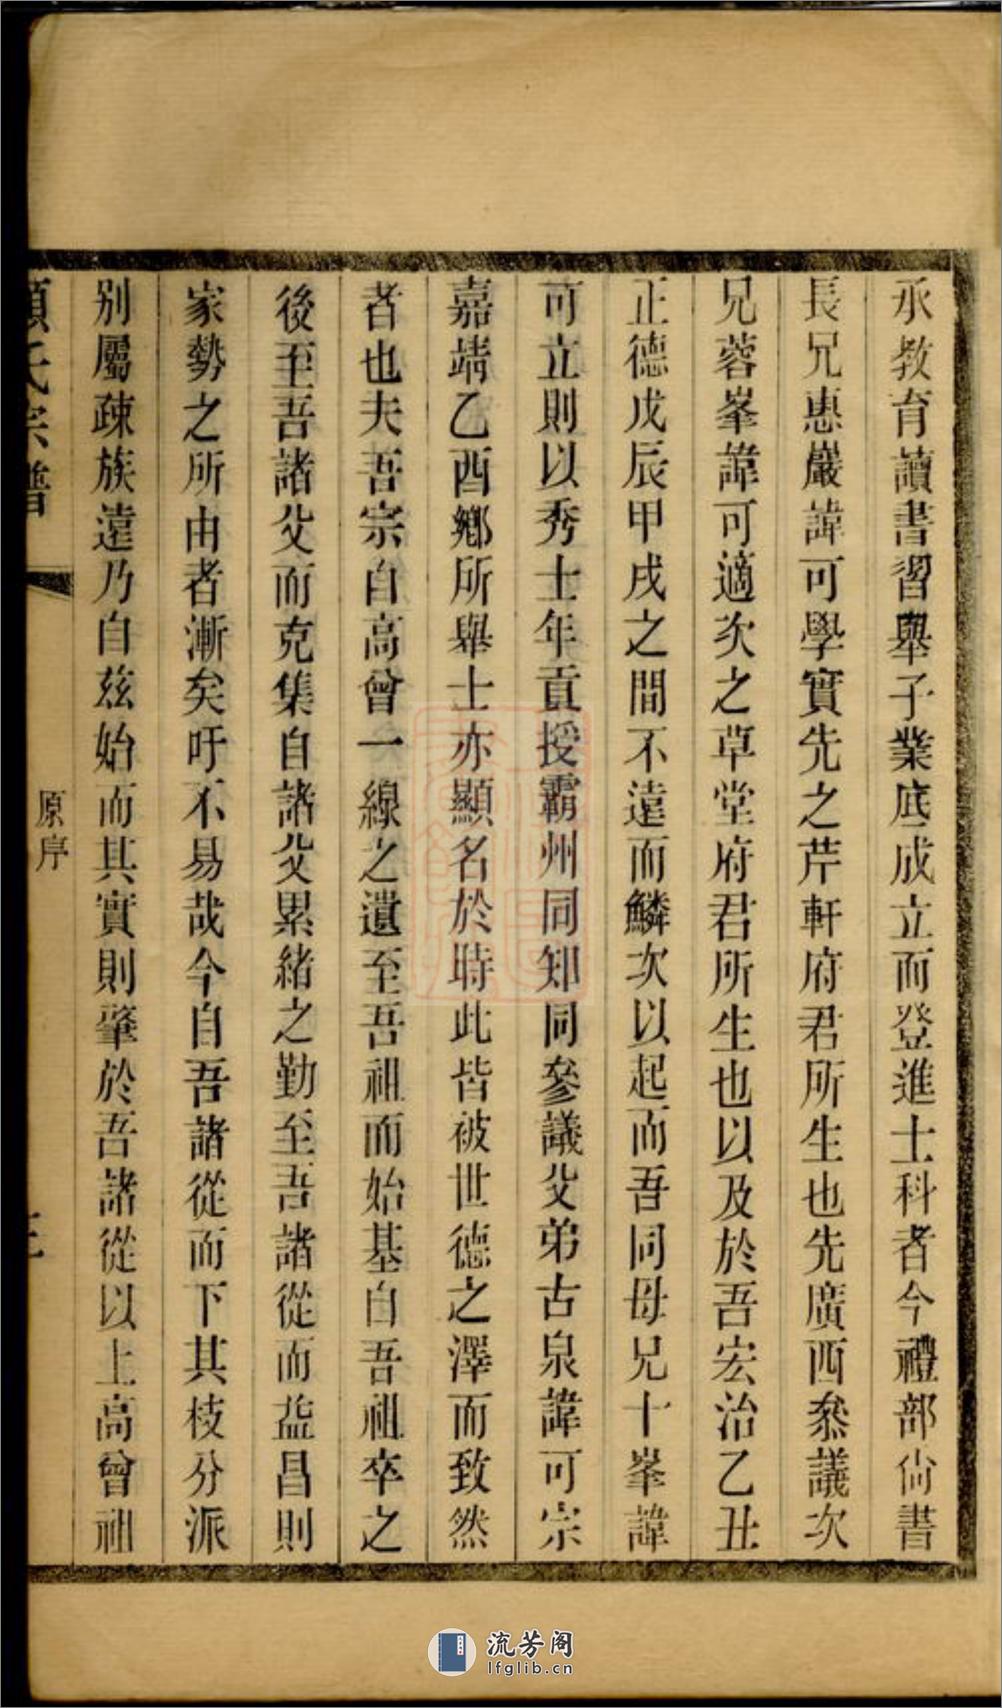 承教育讀書習舉子業底成立而登進士科者今禮部尙書
長兄惠巖諱可學實先之芹軒府君所生也先廣西叅議次
兄蓉峯諱可適次之草堂府君所生也以及於吾宏治乙丑
正德戊辰甲戌之間不遠而鱗次以起而吾同母兄十峯諱
可立則以秀士年貢授霸州同知同參議父弟古泉諱可宗
嘉靖乙酉鄉所舉士亦顯名於時此皆被世德之澤而致然
者也夫吾宗自高曾一線之遺至吾祖而始基自吾祖卒之
後至吾諸父而克集自諸父累緒之勤至吾諸從而益昌則
家勢之所由者漸矣吁不易哉今自吾諸從而下其枝分派
別屬疎族遠乃自茲始而其實則肇於吾諸從以上高曾祖
氏宗譜
原序
流芳阁
lfglib.cn